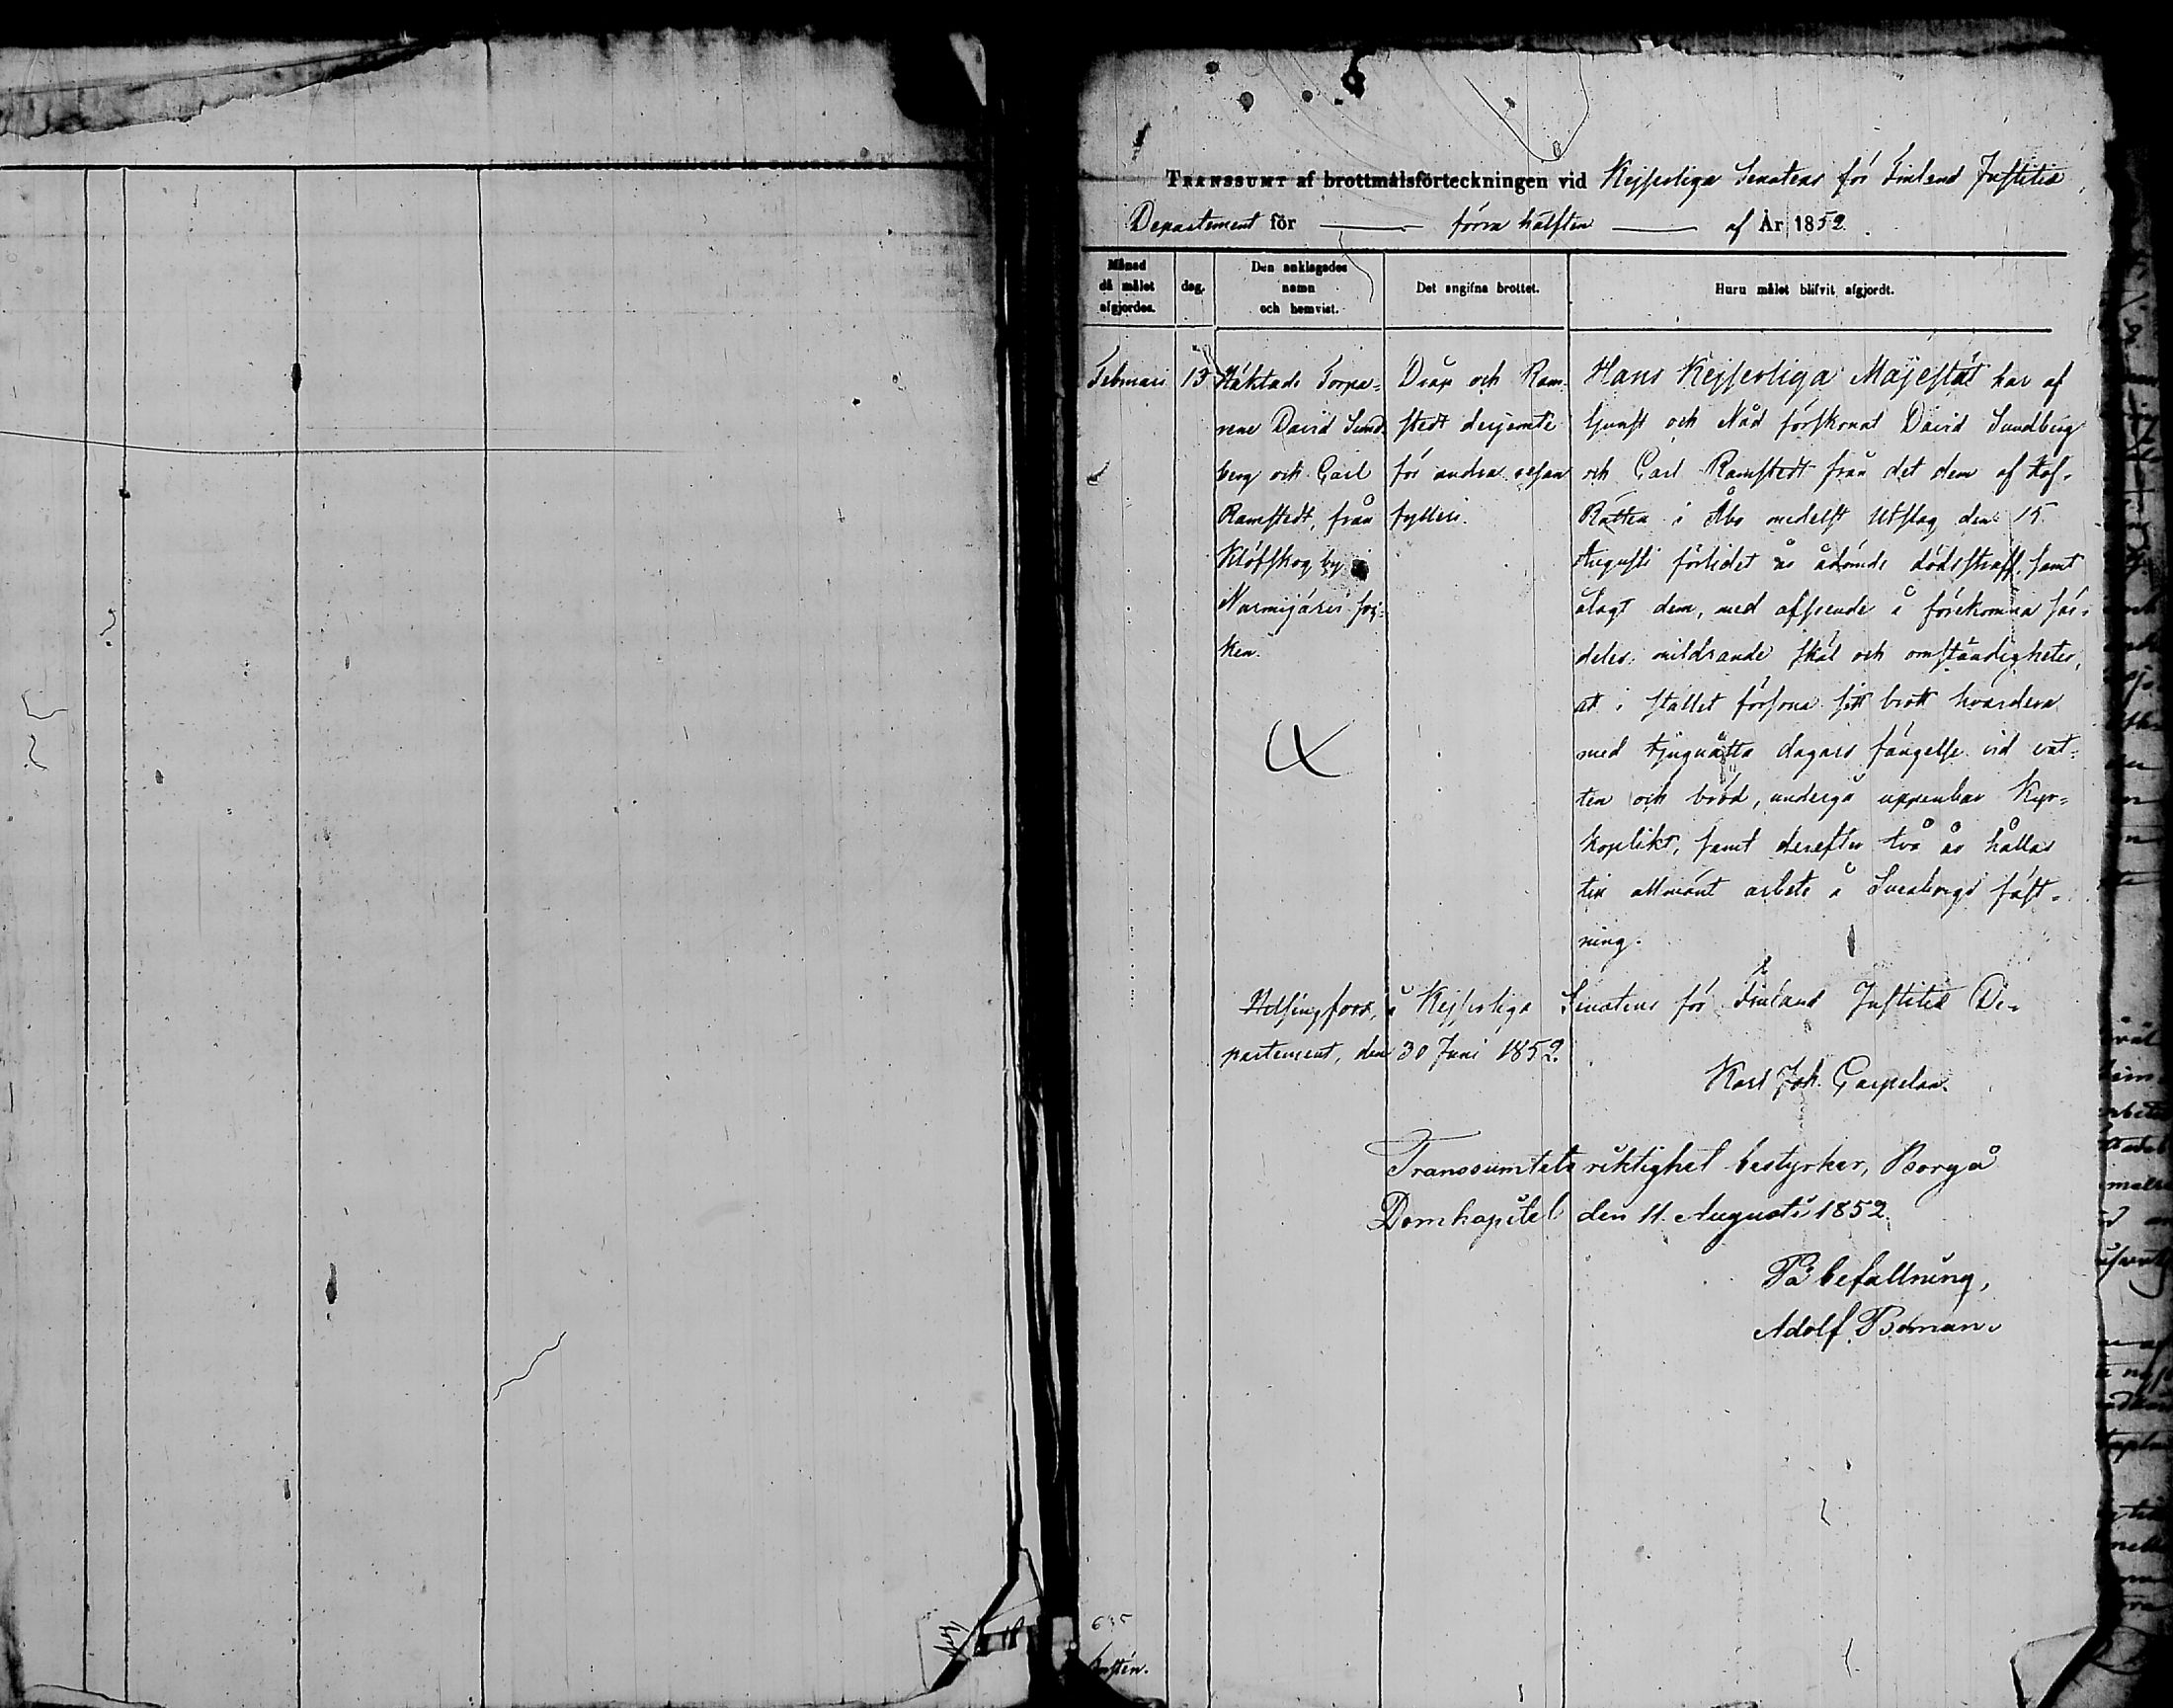 Transsumt af brottmålsförteckningen vid Kejserliga Senatens för Finland Justitiæ
Departement för — förra hälften — af År 1852.
Månad
då målet
afgjordes.
dag.
Den anklagades
namn
och hemvist.
Det angifna brottet.
Huru målet blifvit afgjordt.
Februari
13
Häktade Torpa-
rene David Sund-
berg och Carl
Ramstedt, från
Klöfskog by i
Nurmijärvi soc-
ken.
Dråp och Ram-
stedt derjemte
för andra resan
fylleri.
Hans Kejserliga Majestät har af
Gunst och Nåd förskonat David Sundberg
och Carl Ramstedt från det dem af Hof-
Rätten i Åbo medelst Utslag den 15
Augusti förlidet år ådömde dödsstraff, samt
ålagt dem, med afseende å förekomna sär-
deles mildrande skäl och omständigheter,
att i stället försona sitt brott hvardera
med tjuguåtta dagars fängelse vid vat-
ten och bröd, undergå uppenbar Kyr-
koplikt, samt derefter två år hållas
till allmänt arbete å Sveaborgs fäst-
ning.
Helsingfors, å Kejserliga Senatens för Finland Justitiæ De-
partement, den 30 Juni 1852.
Karl Joh. Carpelan.
Transsumtets riktighet bestyrker, Borgå
Domkapitel den 11 Augusti 1852.
På befallning,
Adolf Boman.
635